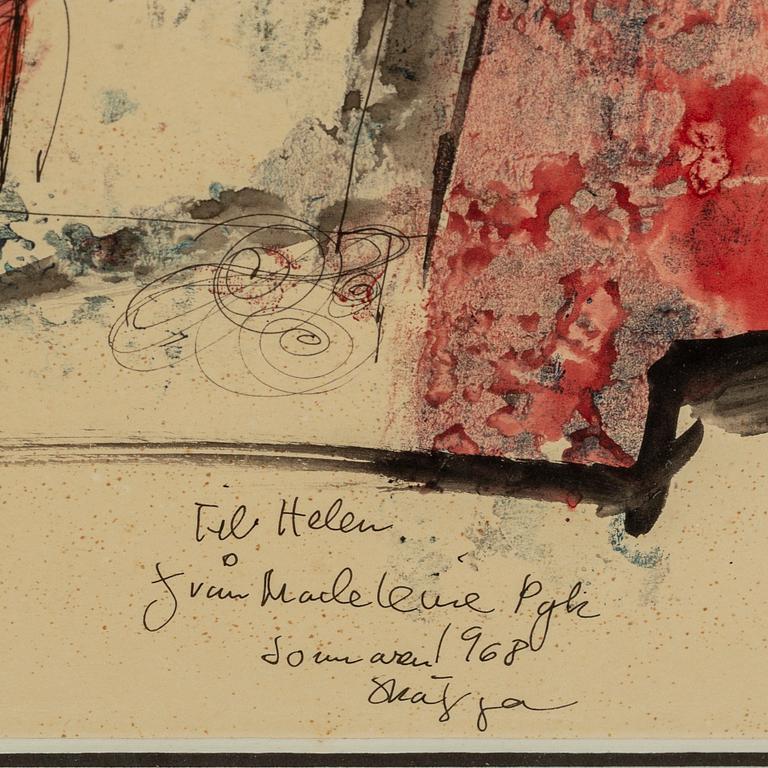 Till Helen
från Madeleine Pyk
Sommaren 1968